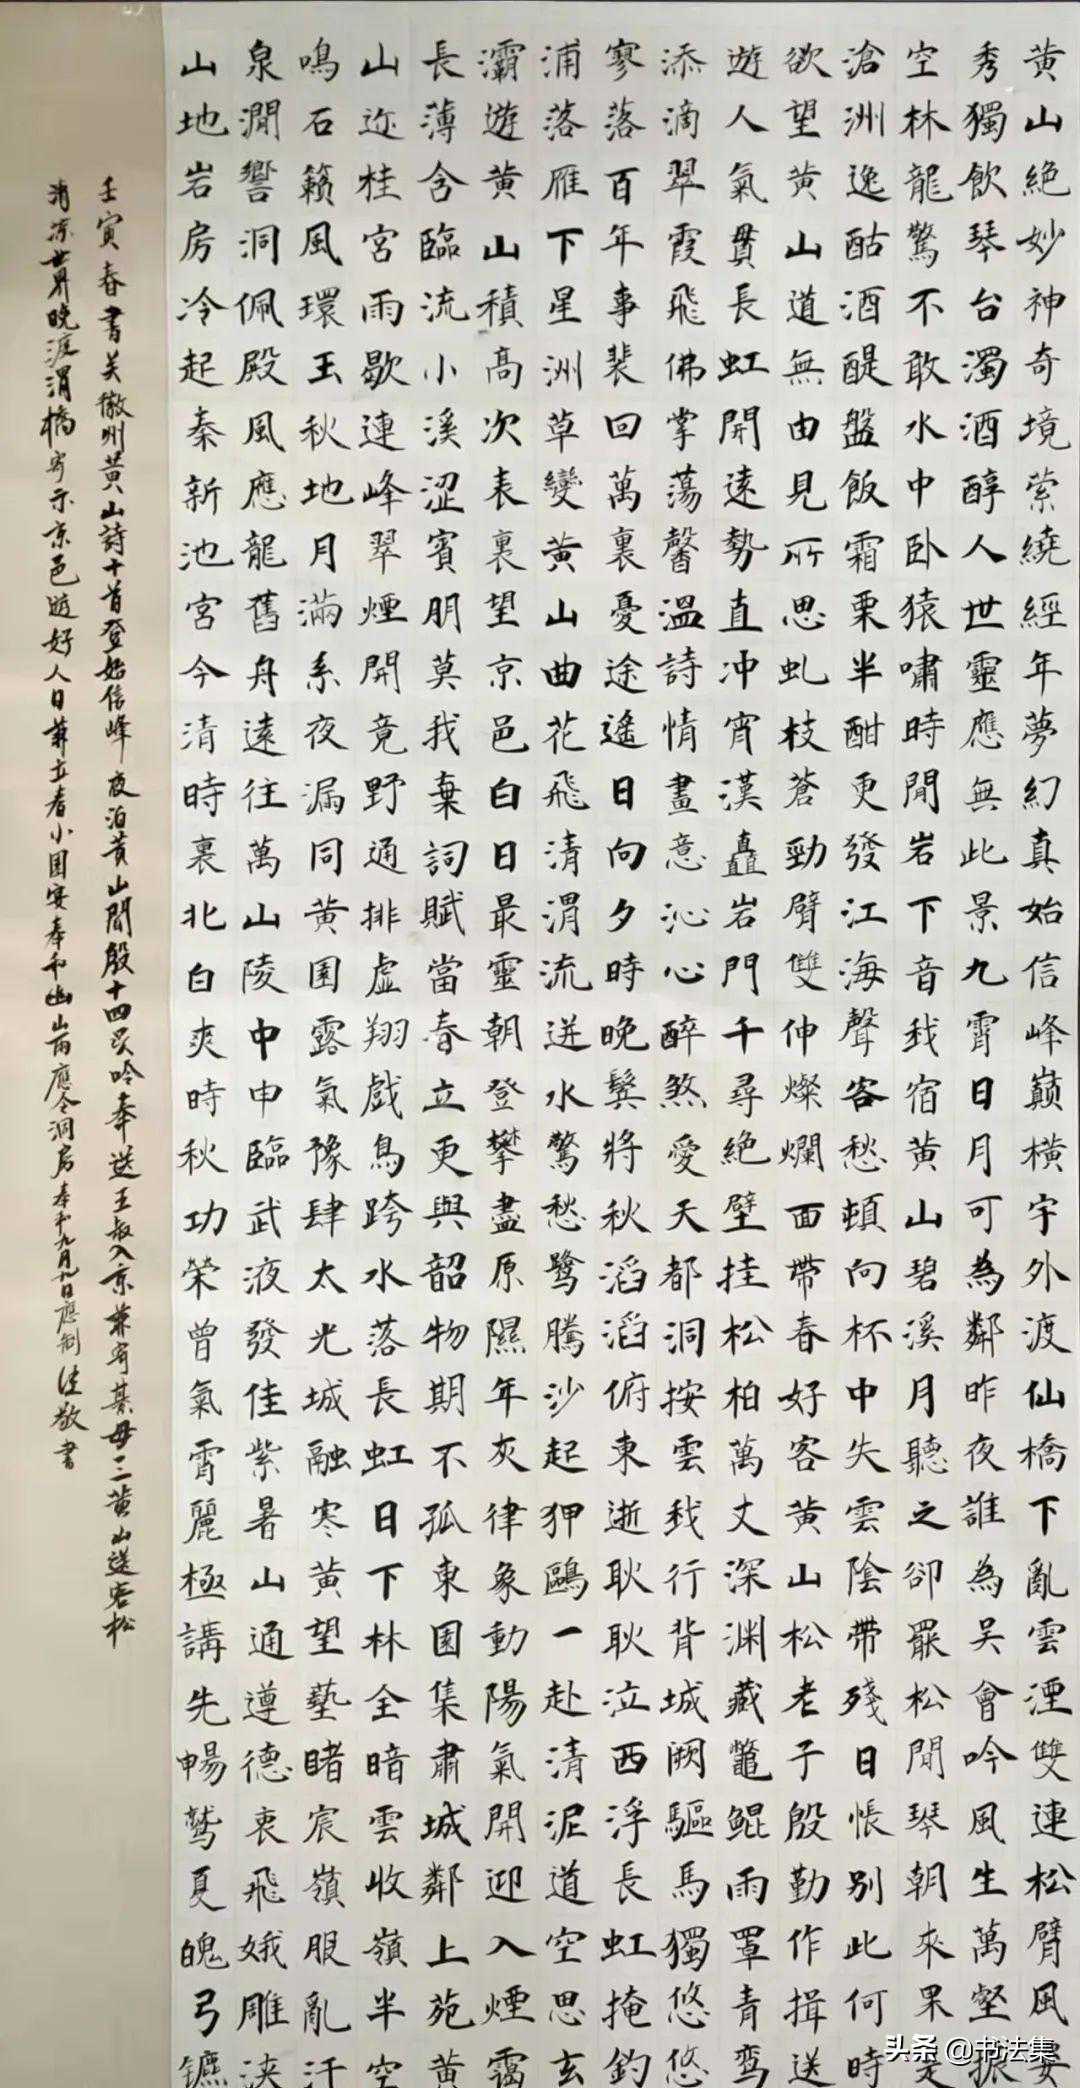 黄山絕妙神奇境縈繞經年夢幻真始信峰巔橫宇外渡仙橋下亂雲湮雙連松臂風
秀獨飲琴台濁酒醇人世靈應無此景九霄日月可為鄰昨夜誰為吳會吟風生萬壑振
空林龍驚不敢水中卧猿嘯時聞岩下音我宿黄山碧溪月聽之卻罷松間琴朝來果是
滄洲逸酤酒醍盤飯霜栗半酣更發江海聲客愁頓向杯中失雲陰帶殘日悵别此何時
欲望黄山道無由見所思虬枝蒼勁臂雙伸燦爛面帶春好客黄山松老子殷勤作揖送
遊人氣貫長虹開遠勢直冲宵漢矗岩門千尋絕壁挂松柏萬丈深淵藏鼉鯤雨罩青鸞
添滴翠霞飛佛掌蕩馨溫詩情畫意沁心醉煞愛天都洞按雲我行背城闕驅馬獨悠悠
寥落百年事裴回萬裏憂途遙日向夕時晚鬢將秋滔滔俯東逝耿耿泣西浮長虹掩釣
浦落雁下星洲草變黄山曲花飛清渭流迸水驚愁鷺騰沙起狎鷗一赴清泥道空思玄
灞遊黄山積高次表裏望京邑白日最靈朝登攀盡原隰年灰律象動陽氣開迎入煙靄
長薄含臨流小溪澀賓朋莫我棄詞賦當春立更與韶物期不孤東園集肅城鄰上苑黄
山邇桂宮雨歇連峰翠煙開竟野通排虛翔戲鳥跨水落長虹日下林全暗雲收嶺半空
鳴石籟風環玉秋地月滿系夜漏同黄園露氣豫肆太光城融寒黄望藝睹宸嶺服亂汗
泉澗響洞佩殿風應龍舊舟遠往萬山陵中申臨武液發佳紫暑山通遵德衷飛娥雕浹
山地岩房冷起秦新池宮今清時裏北白爽時秋功榮曾氣霄麗極講先暢鷲夏魄弓鑣
壬寅春書关徽州黄山詩十首登始信峰夜泊黄山聞殷十四吴吟奉送王叔入京兼寄綦毋三黄山送客松
清凉世界晚渡渭橋寄示京邑遊好人日兼立春小園宴奉和幽山雨應令洞房奉和九月九日應制佳敬書
头条@书法集